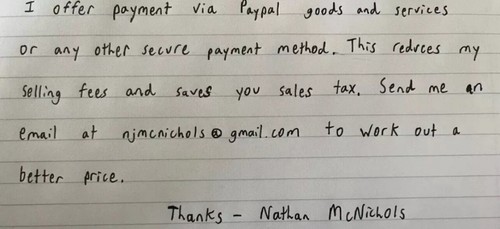 I offer payment via Paypal goods and services
or any other secure payment method. This reduces my
selling fees and saves you sales tax. Send me an
email at njmcnichols@gmail.com to work out a
better price.
Thanks - Nathan McNichols